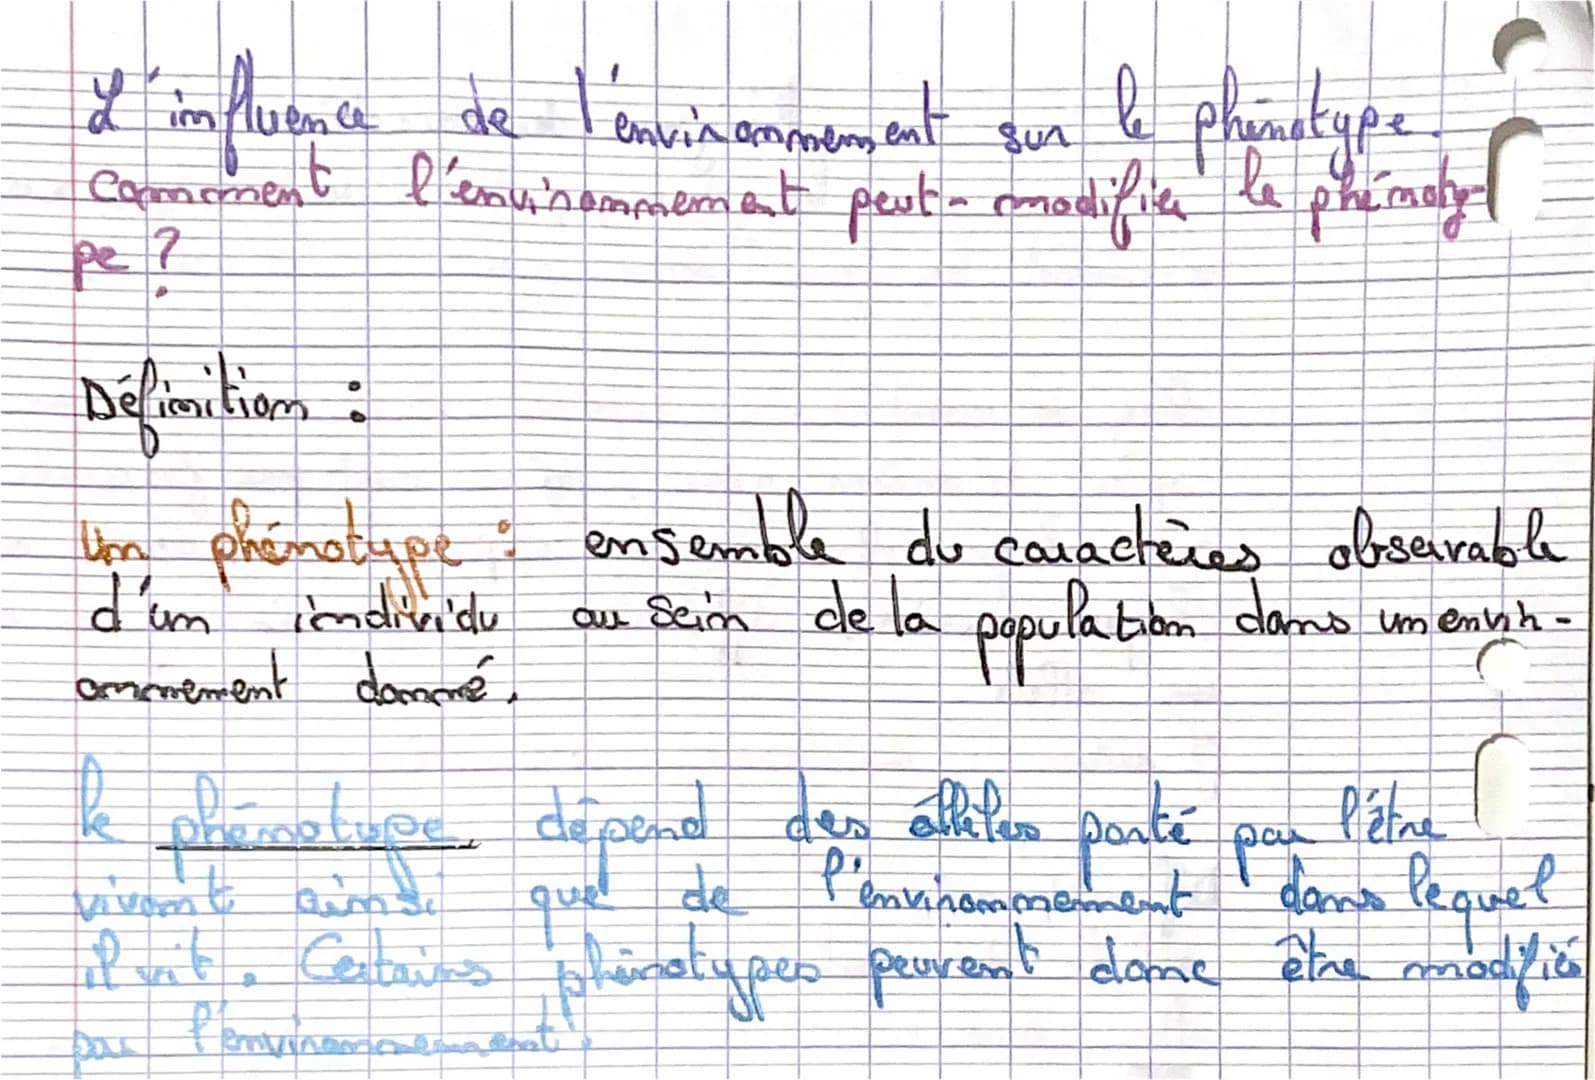 L'influence de l'environnement sur le phénotype.
comment l'environnement peut-modifier le phénoty-
pe ?
Définition :
Un phénotype : ensemble du caractères observable
d'un individu au sein de la population dans un envir-
onnement donné.
Le phénotype dépend des allèles porté par l'être
vivant ainsi que de l'environnement dans lequel
il vit. Certains phénotypes peuvent donc être modifiés
par l'environnement.